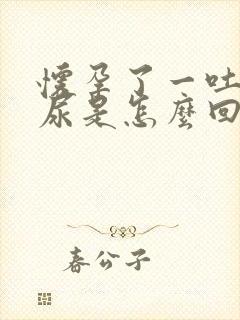 懷孕了一吐
尿是怎麼回
春公子